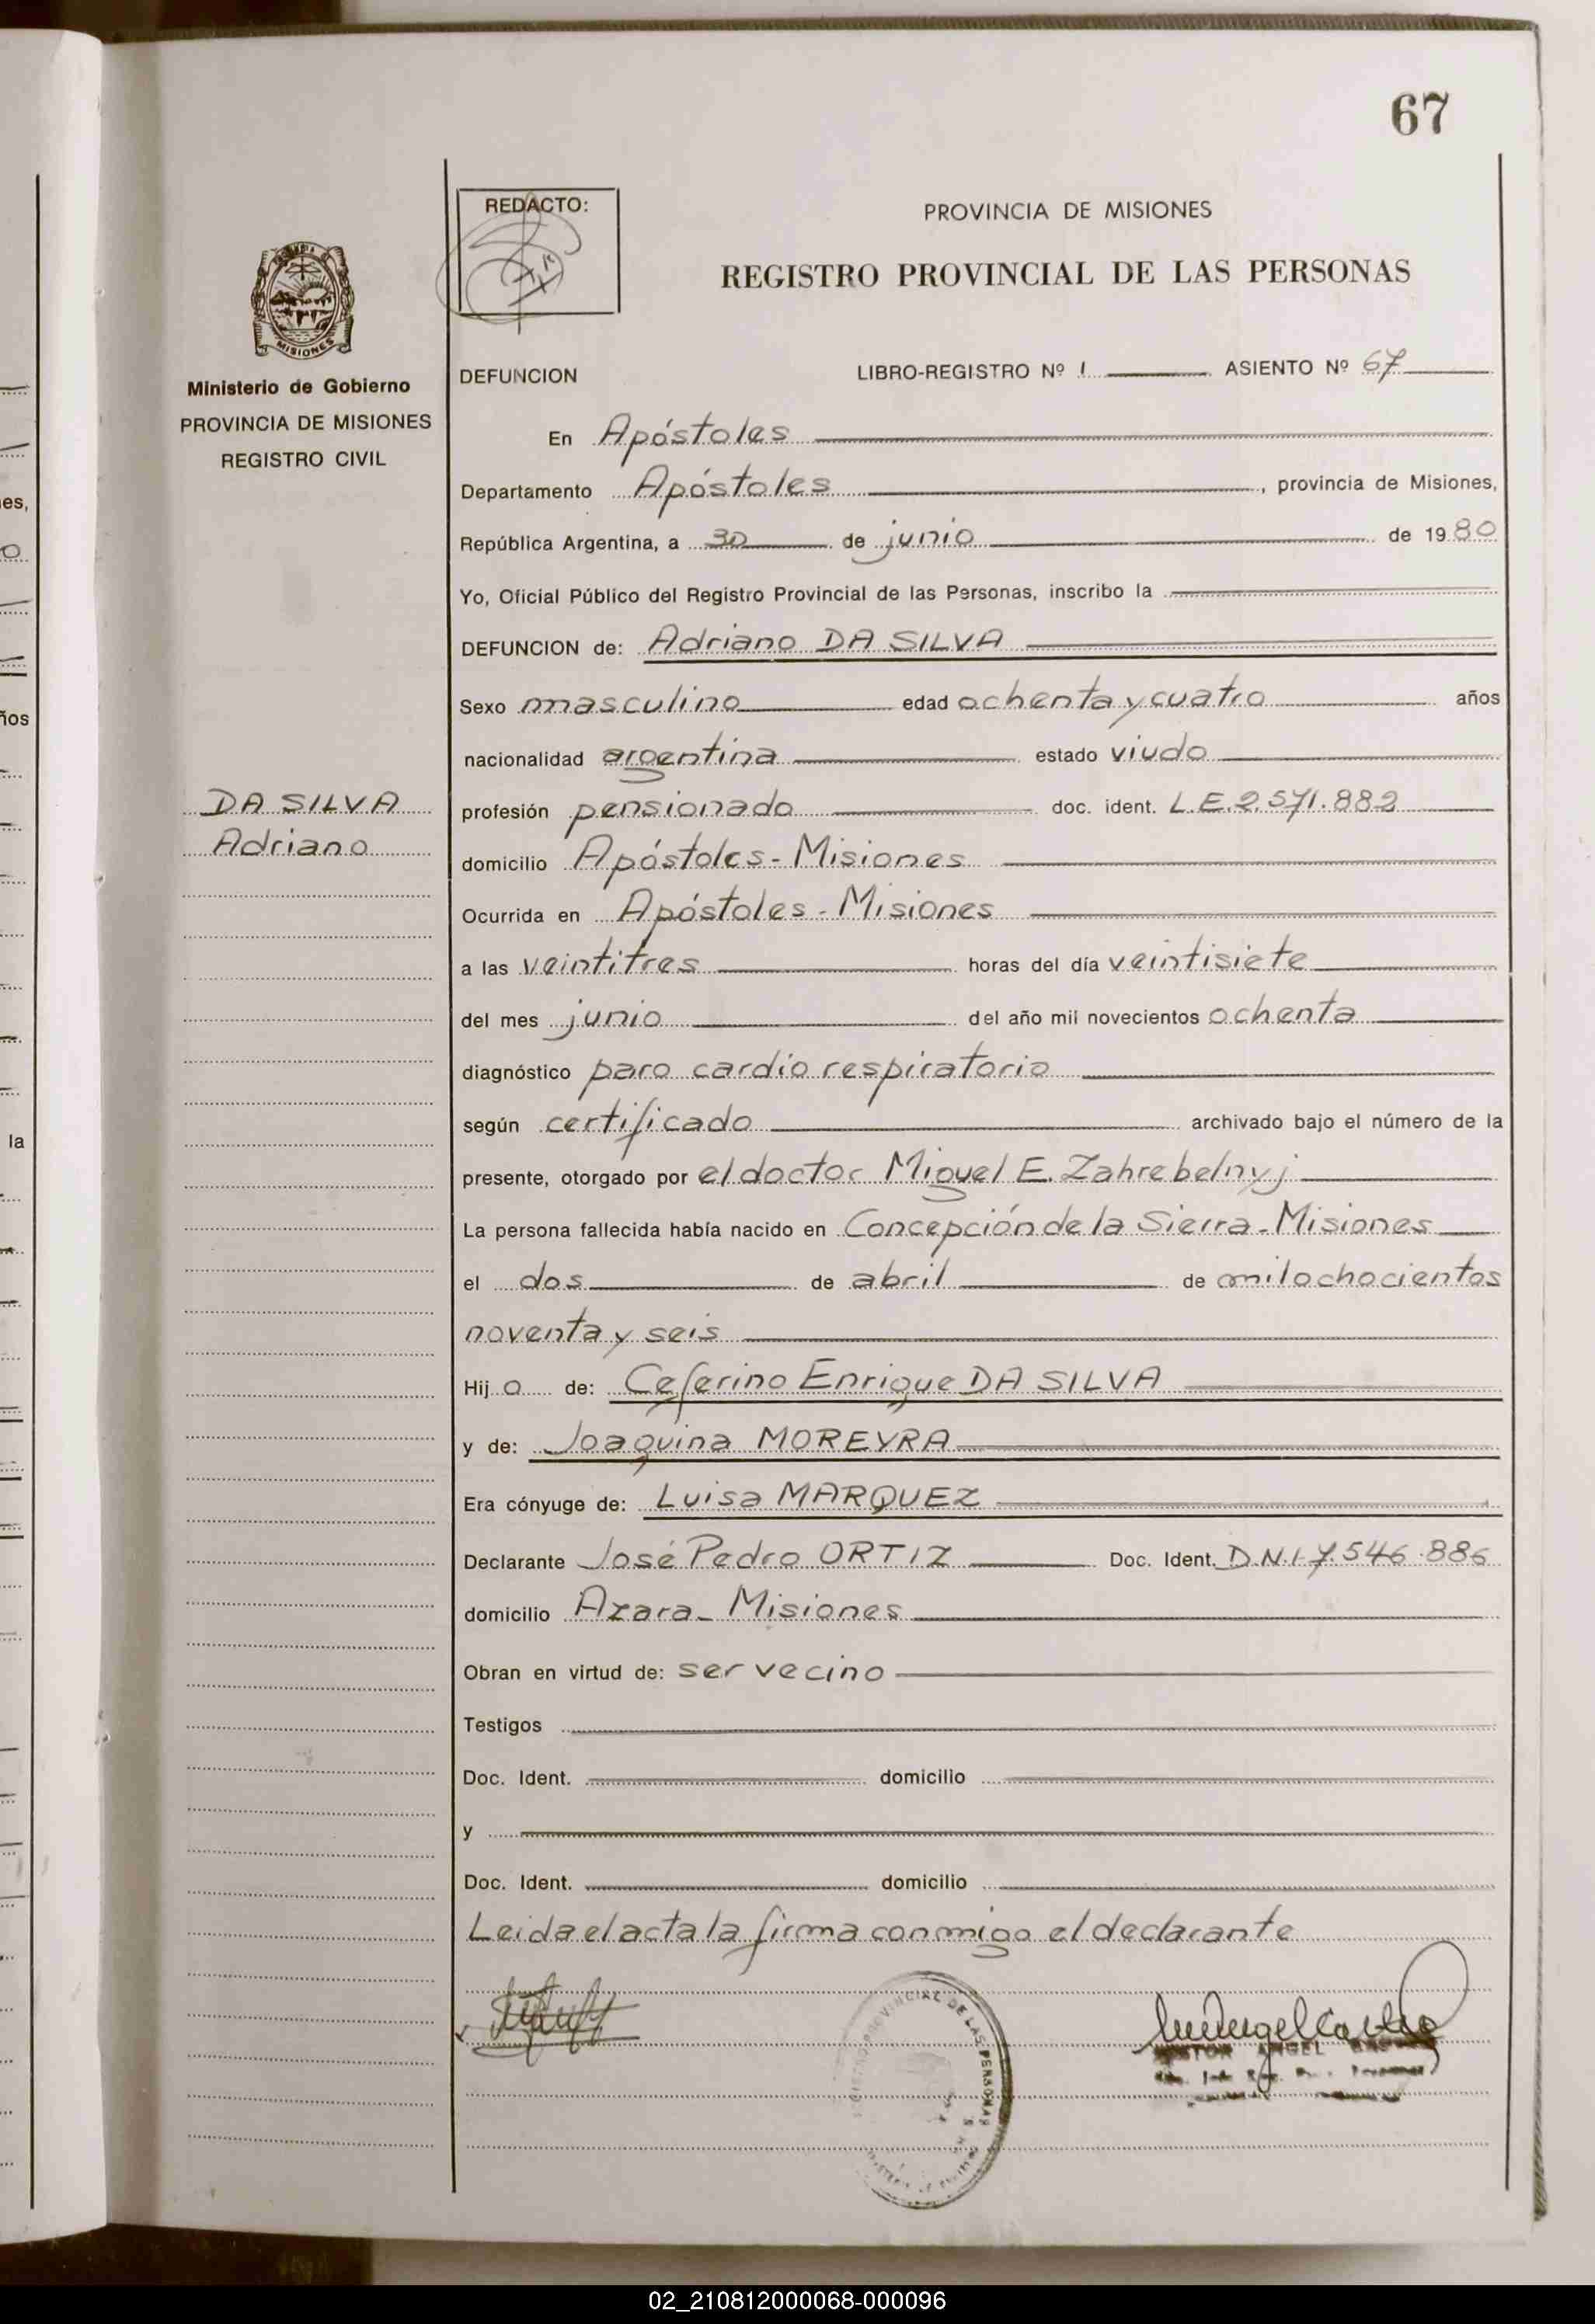 67
REDACTO:
PROVINCIA DE MISIONES
REGISTRO PROVINCIAL DE LAS PERSONAS
MISIONES
Ministerio de Gobierno
PROVINCIA DE MISIONES
REGISTRO CIVIL
DEFUNCION LIBRO-REGISTRO Nº 1 ASIENTO Nº 67
En Apóstoles
Departamento Apóstoles, provincia de Misiones,
República Argentina, a 30 de junio de 1980
Yo, Oficial Público del Registro Provincial de las Personas, inscribo la
DEFUNCION de: Adriano DA SILVA
Sexo masculino edad ochenta y cuatro años
nacionalidad argentina estado viudo
DA SILVA
Adriano
profesión pensionado doc. ident. L.E.2.571.882
domicilio Apóstoles - Misiones
Ocurrida en Apóstoles - Misiones
a las veintitres horas del día veintisiete
del mes junio del año mil novecientos ochenta
diagnóstico paro cardio respiratorio
según certificado archivado bajo el número de la
presente, otorgado por el doctor Miguel E. Zahrebelnyj
La persona fallecida había nacido en Concepción de la Sierra - Misiones
el dos de abril de mil ochocientos
noventa y seis
Hijo de: Ceferino Enrique DA SILVA
y de: Joaquina MOREYRA
Era cónyuge de: Luisa MARQUEZ
Declarante José Pedro ORTIZ Doc. Ident. D.N.I 7.546.886
domicilio Azara - Misiones
Obran en virtud de: ser vecino
Testigos
Doc. Ident. domicilio
y
Doc. Ident. domicilio
Leida el acta la firma conmigo el declarante
PROVINCIAL DE LAS PERSONAS
ANGEL
es,
0
ños
la
02_210812000068-000096